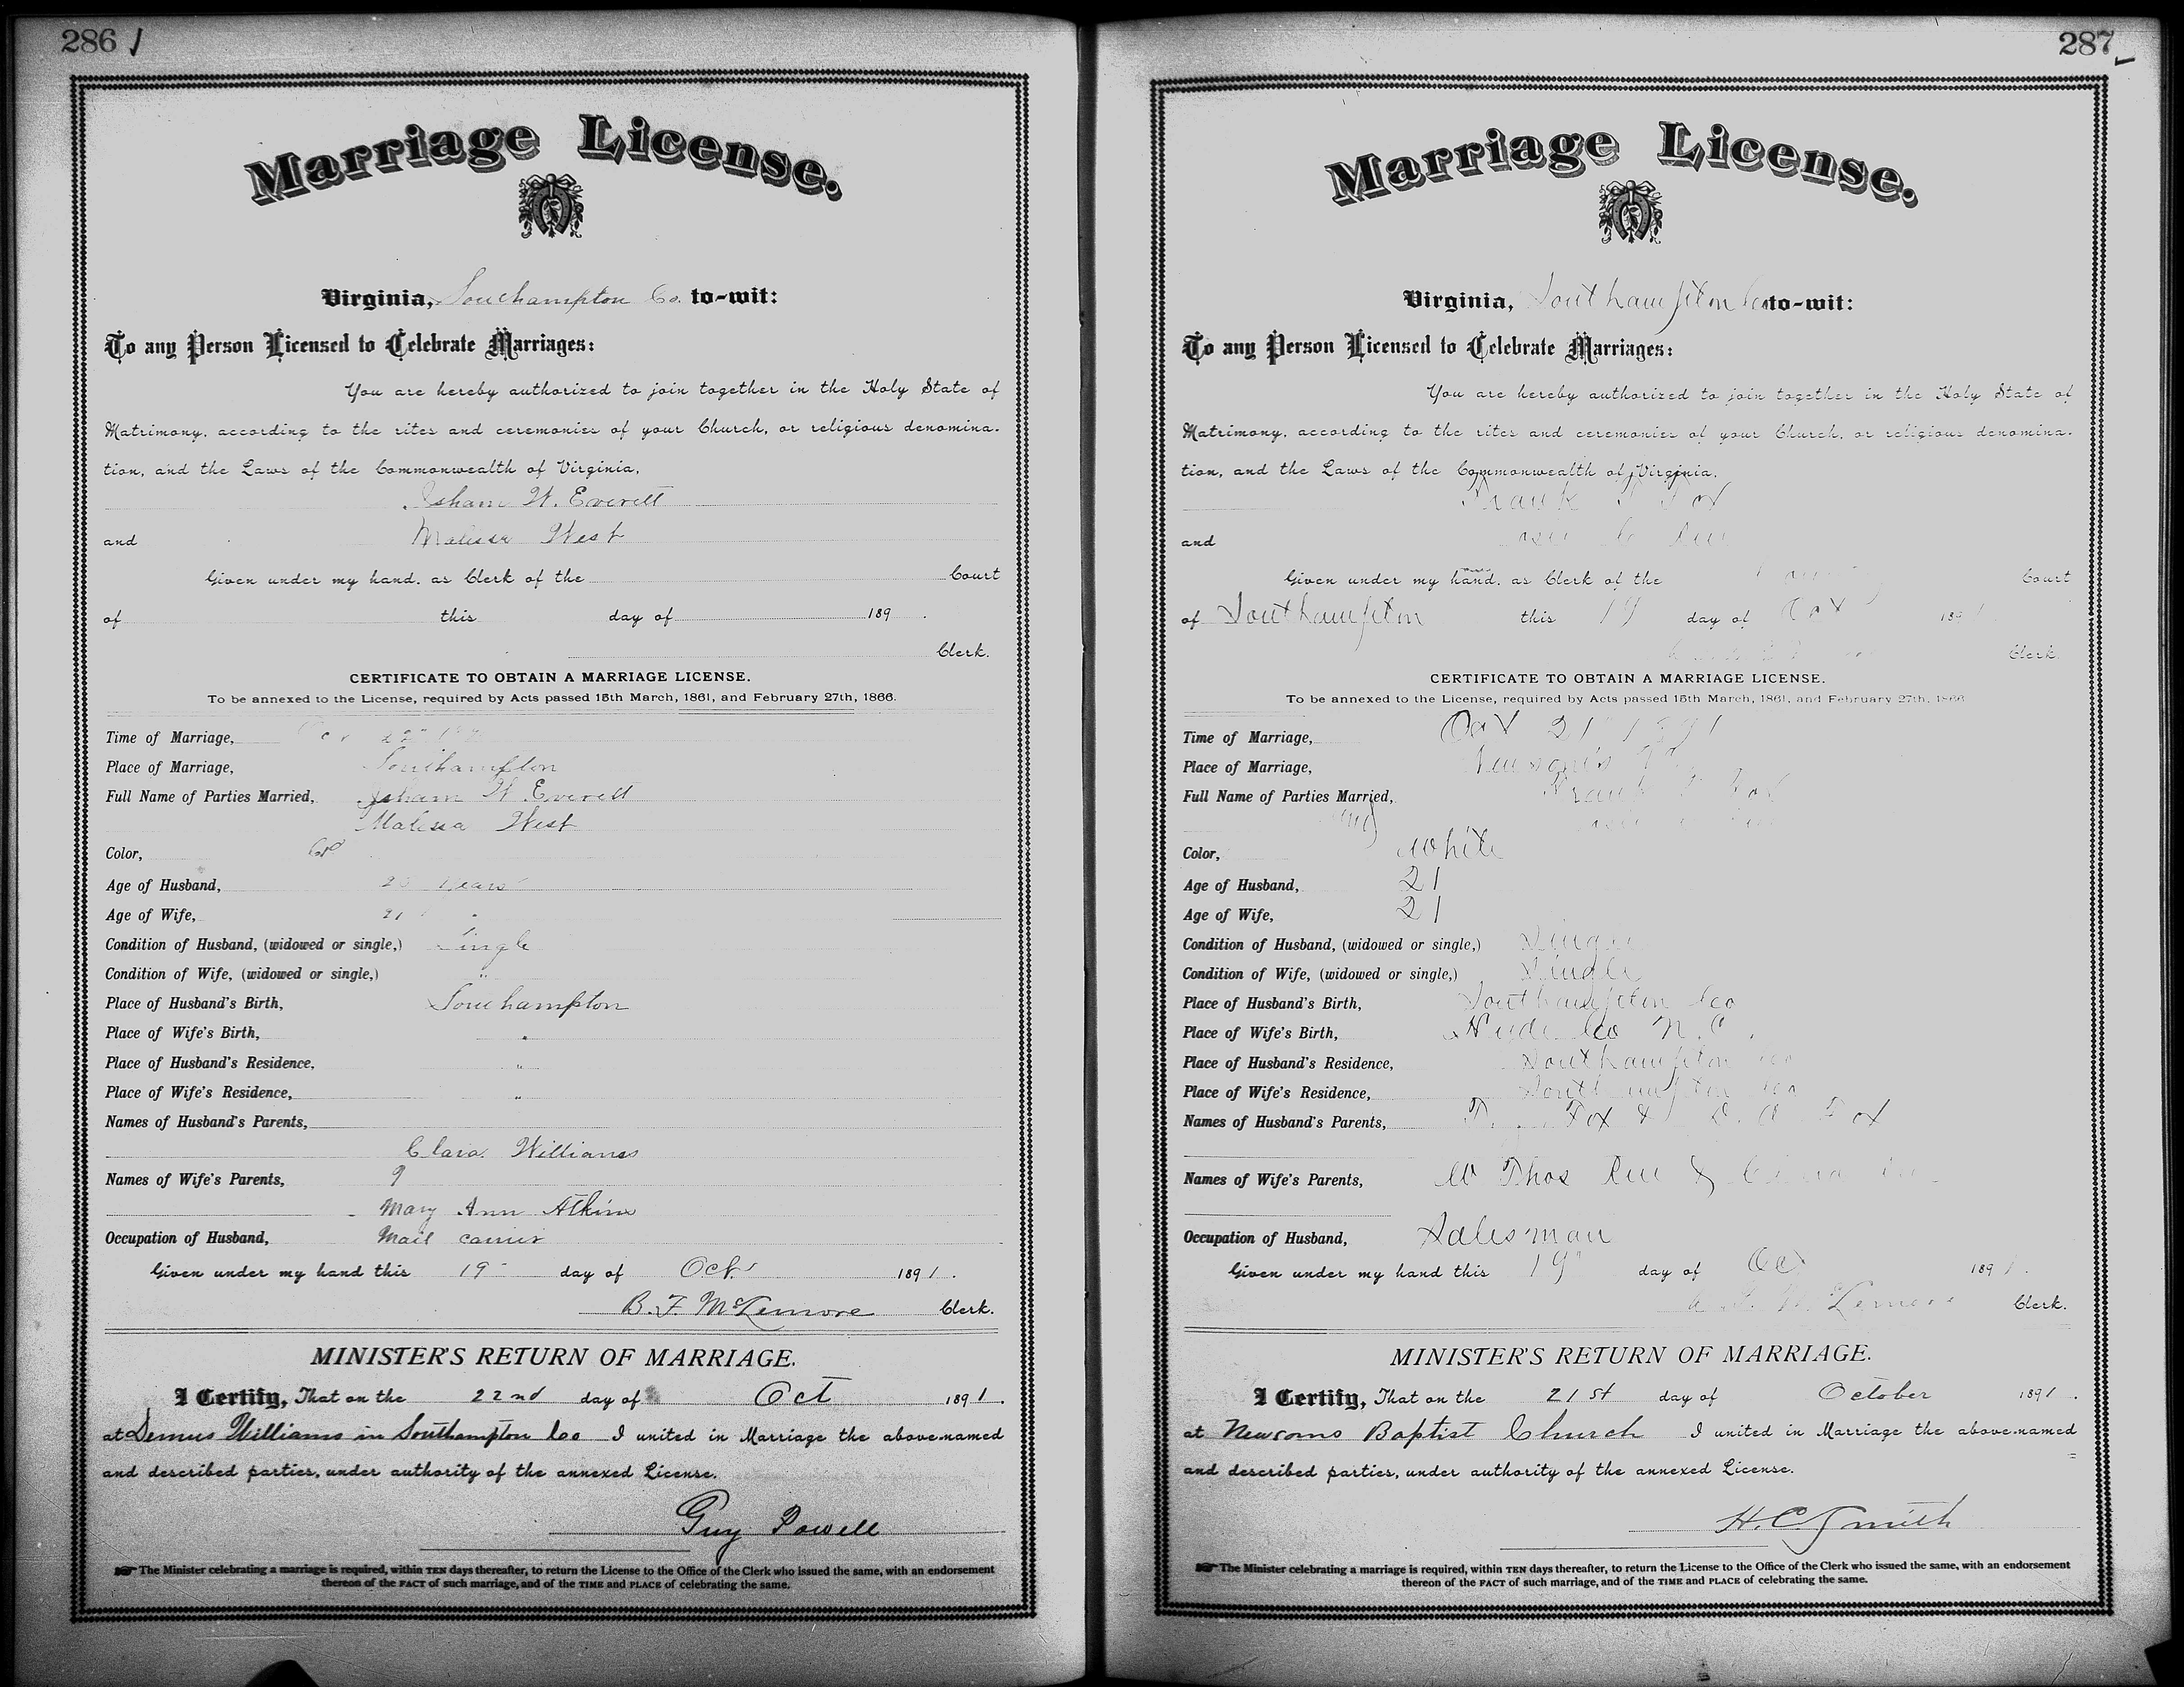 286
Marriage License.
Virginia, Southampton Co. to-wit:
To any Person Licensed to Celebrate Marriages:
You are hereby authorized to join together in the Holy State of
Matrimony, according to the rites and ceremonies of your Church, or religious denomina-
tion, and the Laws of the Commonwealth of Virginia,
Isham W. Everett
and Malissa West
Given under my hand, as Clerk of the Court
of this day of 189 .
Clerk.
CERTIFICATE TO OBTAIN A MARRIAGE LICENSE.
To be annexed to the License, required by Acts passed 15th March, 1861, and February 27th, 1866.
Time of Marriage,
Place of Marriage, Southampton
Full Name of Parties Married, Isham W. Everett
Malissa West
Color, Col
Age of Husband, years
Age of Wife, 21 "
Condition of Husband, (widowed or single,) Single
Condition of Wife, (widowed or single,) "
Place of Husband's Birth, Southampton
Place of Wife's Birth, "
Place of Husband's Residence, "
Place of Wife's Residence, "
Names of Husband's Parents,
Clara Williams
Names of Wife's Parents, ?
Mary Ann Atkins
Occupation of Husband, Mail carrier
Given under my hand this 19" day of Oct. 1891.
B. F. McLemore Clerk.
MINISTER'S RETURN OF MARRIAGE.
I Certify, That on the 22nd day of Oct 1891.
at Demus Williams in Southampton Co I united in Marriage the above-named
and described parties, under authority of the annexed License.
Guy Powell
The Minister celebrating a marriage is required, within TEN days thereafter, to return the License to the Office of the Clerk who issued the same, with an endorsement
thereon of the FACT of such marriage, and of the TIME and PLACE of celebrating the same.
287
Marriage License.
Virginia, Southampton Co to-wit:
To any Person Licensed to Celebrate Marriages:
You are hereby authorized to join together in the Holy State of
Matrimony, according to the rites and ceremonies of your Church, or religious denomina-
tion, and the Laws of the Commonwealth of Virginia,
Frank Fox
and
Given under my hand, as Clerk of the Court
of Southampton this 19 day of Oct 1891
Clerk.
CERTIFICATE TO OBTAIN A MARRIAGE LICENSE.
To be annexed to the License, required by Acts passed 15th March, 1861, and February 27th, 1866
Time of Marriage, Oct 21" 1891
Place of Marriage, Newsoms
Full Name of Parties Married, Frank Fox
and
Color, White
Age of Husband, 21
Age of Wife, 21
Condition of Husband, (widowed or single,) Single
Condition of Wife, (widowed or single,) Single
Place of Husband's Birth, Southampton Co
Place of Wife's Birth, Hyde Co N.C.
Place of Husband's Residence, Southampton Co
Place of Wife's Residence, Southampton Co
Names of Husband's Parents, Fox & Fox
Names of Wife's Parents, W Thos &
Occupation of Husband, Salesman
Given under my hand this 19" day of Oct 1891.
McLemore Clerk.
MINISTER'S RETURN OF MARRIAGE.
I Certify, That on the 21st day of October 1891.
at Newsoms Baptist Church I united in Marriage the above-named
and described parties, under authority of the annexed License.
H. C. Smith
The Minister celebrating a marriage is required, within TEN days thereafter, to return the License to the Office of the Clerk who issued the same, with an endorsement
thereon of the FACT of such marriage, and of the TIME and PLACE of celebrating the same.